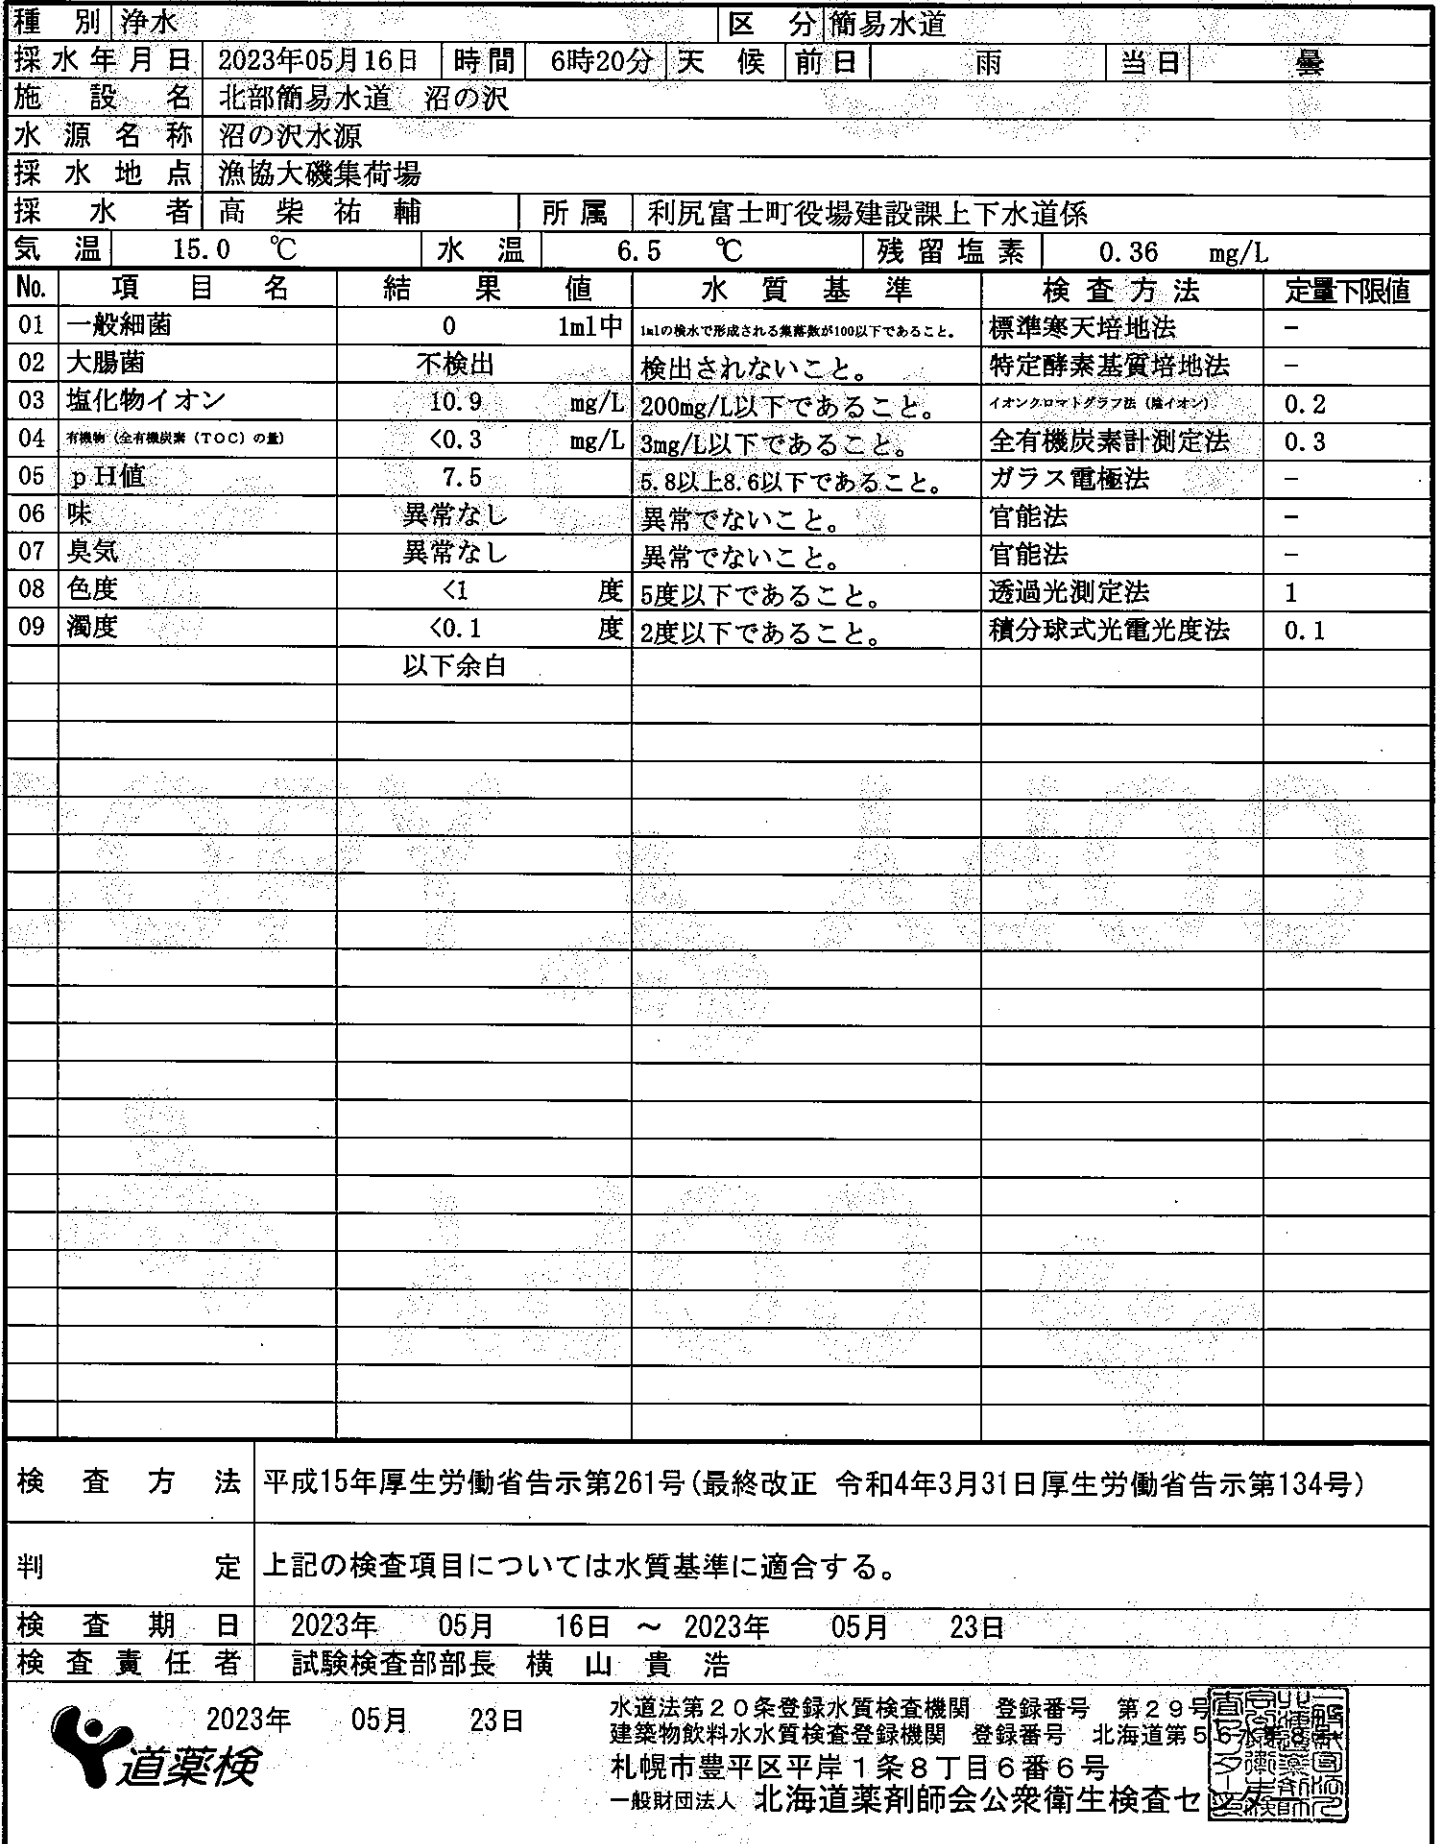 種別 浄水 区分 簡易水道
採水年月日 2023年05月16日 時間 6時20分 天候 前日 雨 当日 曇
施設名 北部簡易水道 沼の沢
水源名称 沼の沢水源
採水地点 漁協大磯集荷場
採水者 高柴祐輔 所属 利尻富士町役場建設課上下水道係
気温 15.0 ℃ 水温 6.5 ℃ 残留塩素 0.36 mg/L
No. 項目名 結果値 水質基準 検査方法 定量下限値
01 一般細菌 0 1ml中 1mlの検水で形成される集落数が100以下であること。 標準寒天培地法 −
02 大腸菌 不検出 検出されないこと。 特定酵素基質培地法 −
03 塩化物イオン 10.9 mg/L 200mg/L以下であること。 イオンクロマトグラフ法（陰イオン） 0.2
04 有機物（全有機炭素（TOC）の量） <0.3 mg/L 3mg/L以下であること。 全有機炭素計測定法 0.3
05 pH値 7.5 5.8以上8.6以下であること。 ガラス電極法 −
06 味 異常なし 異常でないこと。 官能法 −
07 臭気 異常なし 異常でないこと。 官能法 −
08 色度 <1 度 5度以下であること。 透過光測定法 1
09 濁度 <0.1 度 2度以下であること。 積分球式光電光度法 0.1
以下余白
検査方法 平成15年厚生労働省告示第261号(最終改正 令和4年3月31日厚生労働省告示第134号)
判定 上記の検査項目については水質基準に適合する。
検査期日 2023年 05月 16日 ～ 2023年 05月 23日
検査責任者 試験検査部部長 横山貴浩
2023年 05月 23日
道薬検
水道法第２０条登録水質検査機関 登録番号 第２９号
建築物飲料水水質検査登録機関 登録番号 北海道第５６水第８号
札幌市豊平区平岸１条８丁目６番６号
一般財団法人 北海道薬剤師会公衆衛生検査センター